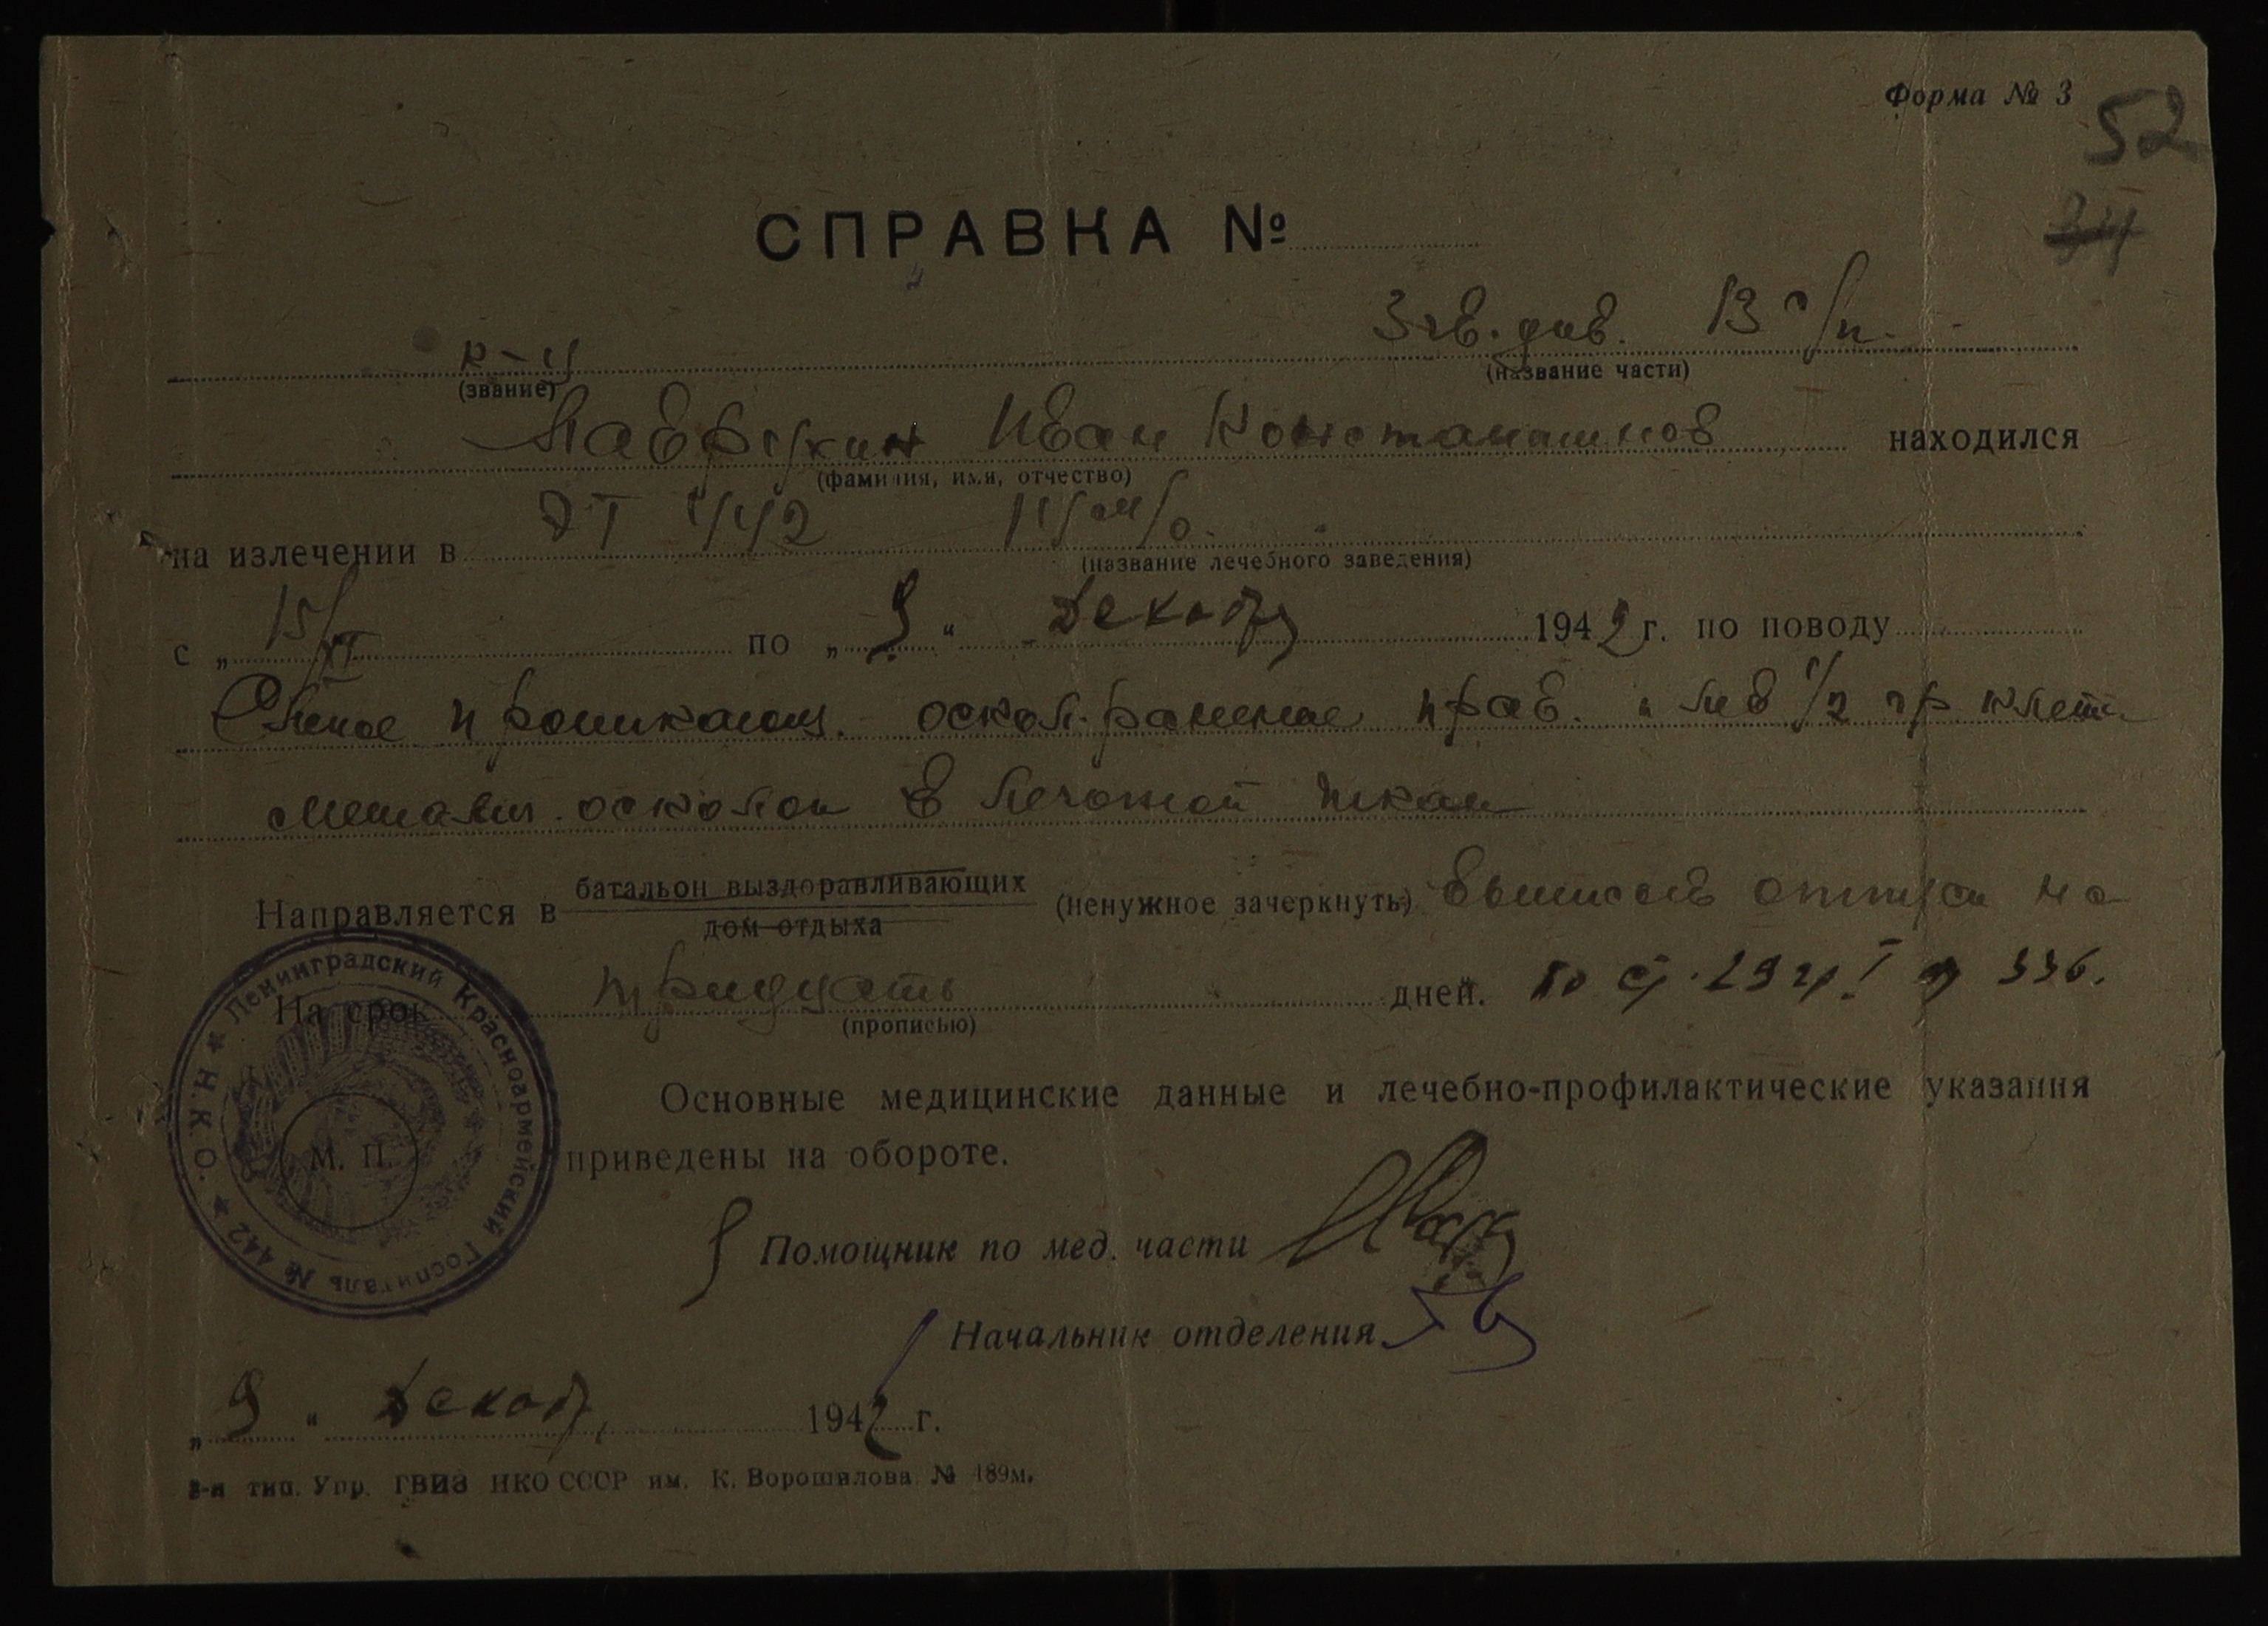 Форма № 3
52
34
СПРАВКА №
к-ц 3 гв. див. 13 с/п.
(звание) (название части)
Лаврушкин Иван Константинов находился
(фамилия, имя, отчество)
на излечении в ЭГ 442
(название лечебного заведения)
с „15/XI по „9“ Декабр 1942 г. по поводу
Слепое проникающ. оскол. ранение прав. и лев 1/2 гр клетк
металл. осколок в легочной ткан
батальон выздоравливающих
Направляется в (ненужное зачеркнуть) отпуск на
дом отдыха
На срок тридцать дней. по ст. 29 336.
(прописью)
Основные медицинские данные и лечебно-профилактические указания
М. П. приведены на обороте.
Помощник по мед. части
Начальник отделения
„9“ Декабр 1942 г.
2-я тип. Упр. ГВИЗ НКО СССР им. К. Ворошилова № 489м.
Н.К.О. * Ленинградский Красноармейский Госпиталь № 442 *